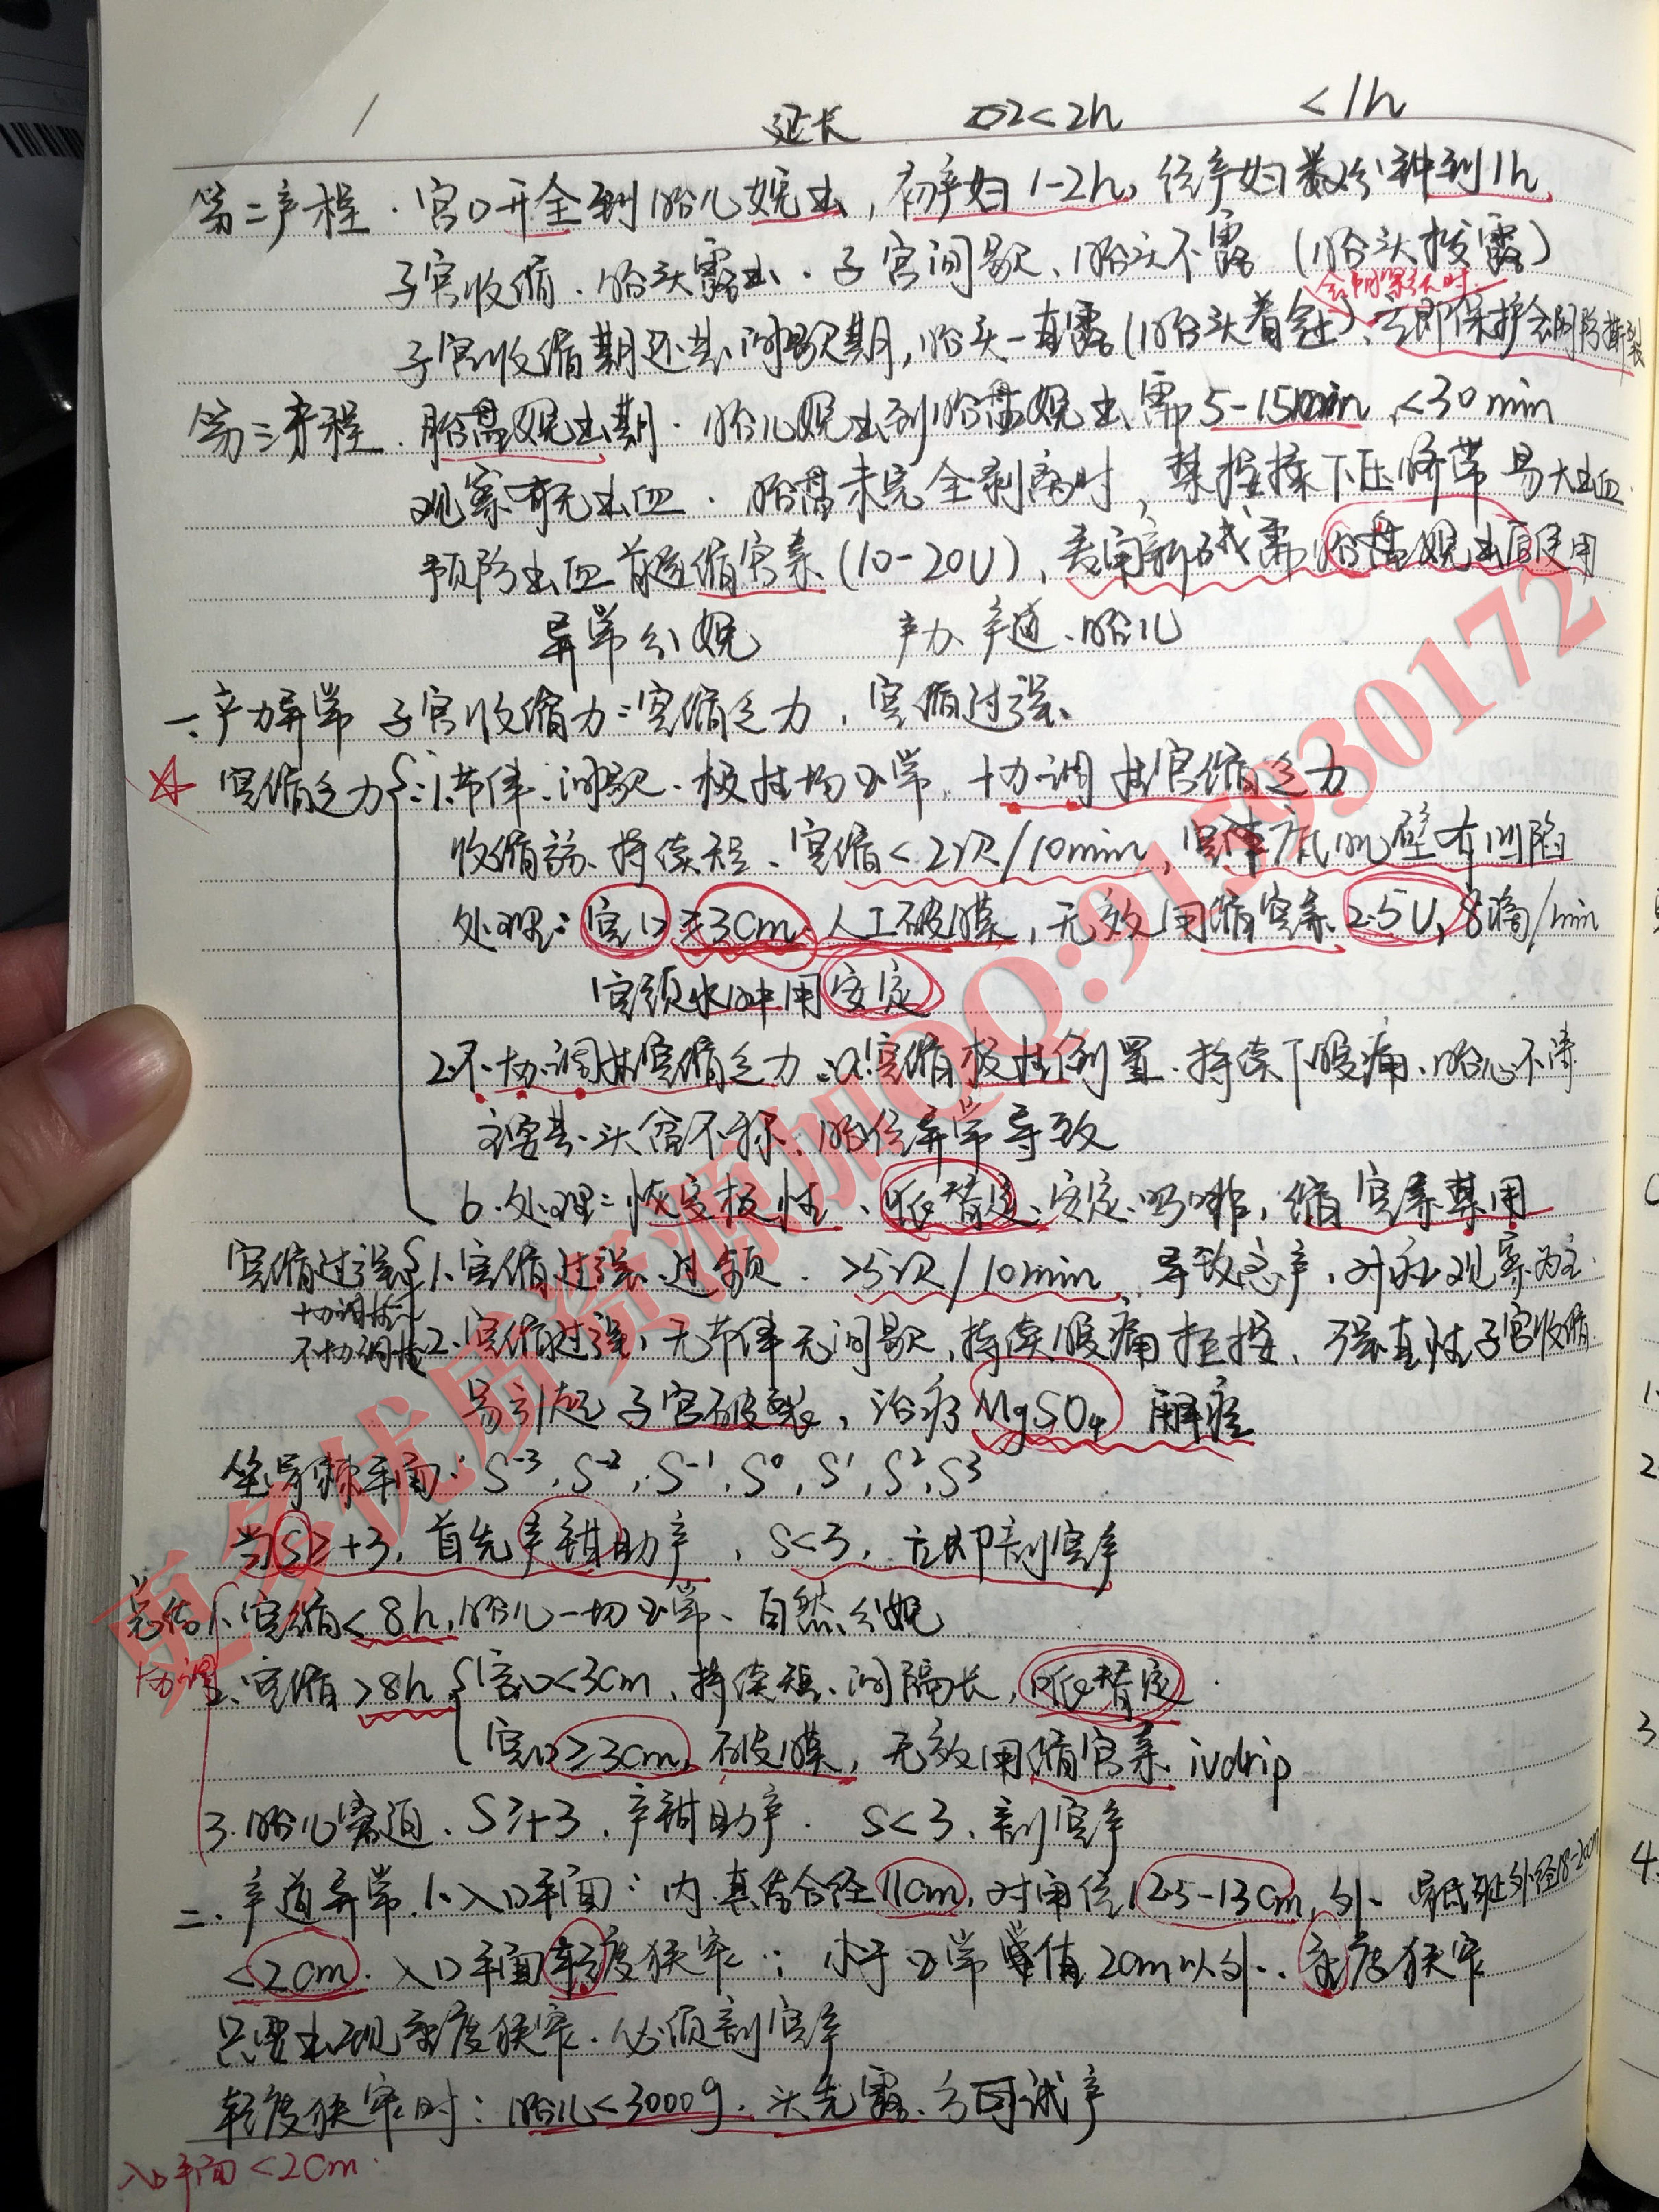 延长 <2h <1h
第二产程.宫口开全到胎儿娩出,初产妇1-2h,经产妇数分钟到1h
子宫收缩.胎头露出.子宫间歇、胎头不露(胎头拨露)
会阴紧张时
子宫收缩期还是间歇期,胎头一直露(胎头着冠)、立即保护会阴防撕裂
第三产程.胎盘娩出期.胎儿娩出到胎盘娩出需5-15min,<30min
观察有无出血.胎盘未完全剥离时,禁按揉下压脐带易大出血
预防出血首选缩宫素(10-20U)、麦角新碱需胎盘娩出后使用
异常分娩 产力、产道、胎儿
一.产力异常 子宫收缩力:宫缩乏力,宫缩过强、
☆宫缩乏力 1.节律、间歇.极性均正常,协调性宫缩乏力
收缩弱、持续短、宫缩<2次/10min,宫体底肌壁有凹陷
处理:宫口≥3cm.人工破膜,无效用缩宫素2.5U,8滴/min
宫颈水肿用安定
2.不协调性宫缩乏力:宫缩极性倒置.持续下腹痛、胎心不清
主要是头盆不称、胎位异常导致
b.处理:恢复极性、哌替啶、安定、吗啡,缩宫素禁用
宫缩过强 1.宫缩过强、过频.>5次/10min 导致急产,对症观察为主
协调性
不协调性 2.宫缩过强,无节律无间歇,持续腹痛拒按、强直性子宫收缩
易引起子宫破裂,治疗MgSO4 解痉
坐骨棘平面:S-3,S-2,S-1,S0,S1,S2,S3
当S≥+3,首先产钳助产,S<3,立即剖宫产
总结 1.宫缩<8h,胎儿一切正常、自然分娩
协调 2.宫缩>8h 宫口<3cm、持续短、间隔长,哌替啶.
宫口≥3cm,破膜,无效用缩宫素ivdrip
3.胎儿窘迫、S≥+3、产钳助产. S<3、剖宫产
二.产道异常.1.入口平面:内.真结合径11cm,对角径12.5-13cm,外、骶耻外径18-20cm
<2cm.入口平面轻度狭窄:小于正常值2cm以外、重度狭窄
只要出现重度狭窄.必须剖宫产
轻度狭窄时:胎儿<3000g.头先露.方可试产
入口平面<2cm.
更多优质资源加QQ:915930172
1
2
3
4